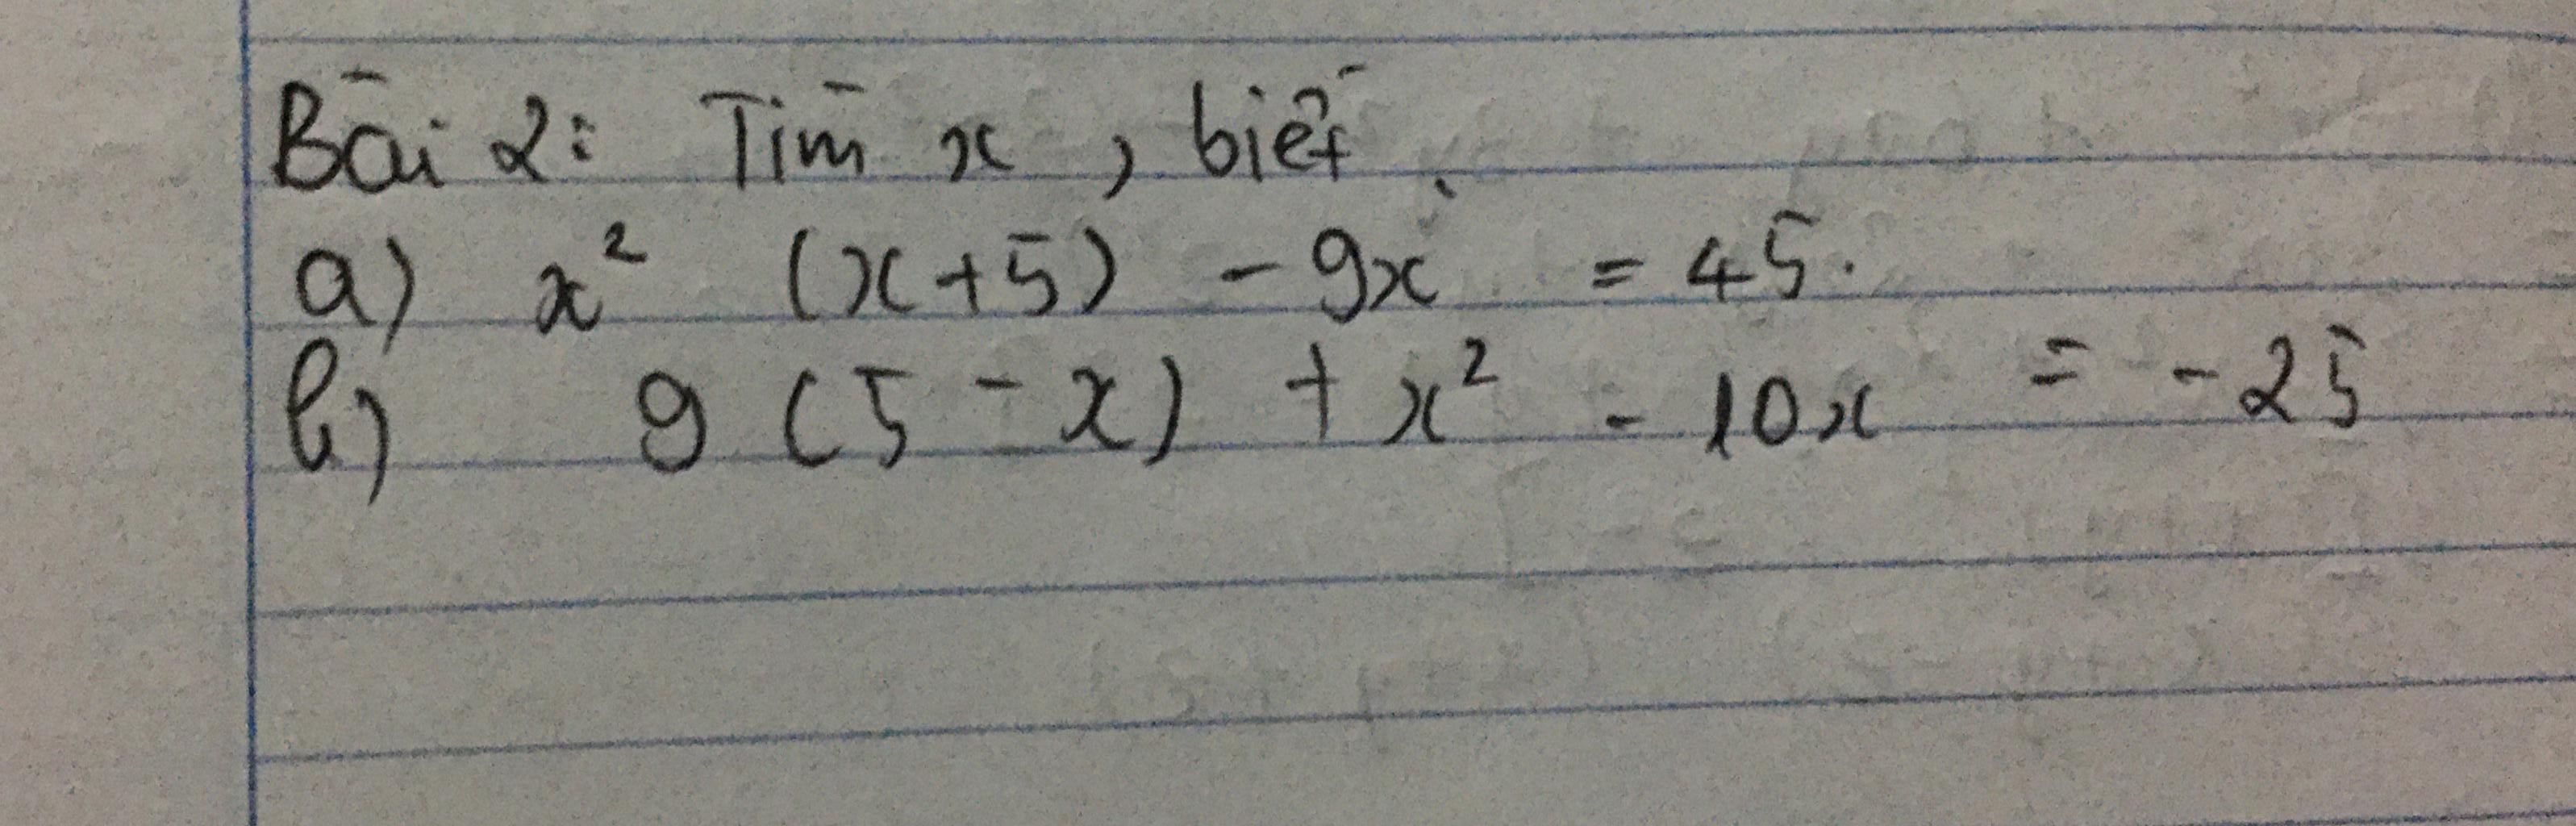 Bài 2: Tìm x, biết.
a) x² (x+5) - 9x = 45.
b) 9 (5 - x) + x² - 10x = -25